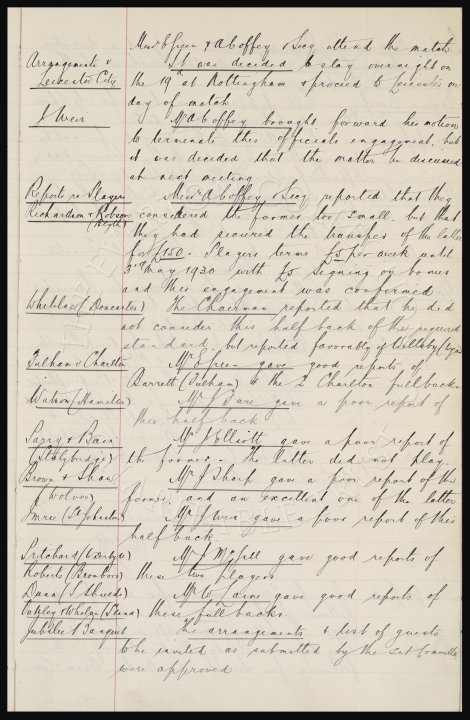 Messrs E Green & A Coffey & Secy attend the match
Arrangements v
Leicester City
It was decided to stay overnight on
the 19th at Nottingham & proceed to Leicester on
day of match
J Weir
Mr A Coffey brought forward his motion
to terminate this officials engagement, but
it was decided that the matter be discussed
at next meeting
Reports re Players
Richardson & Robson
(Blyth)
Messrs A Coffey & Secy reported that they
considered the former too small, but that
they had secured the transfer of the latter
for £150. Players terms £5 per week until
3rd May 1930 with £5 signing on bonus
and this engagement was confirmed.
(Doncaster)
The Chairman reported that he did
not consider this half back of the required
standard, but reported favorably of
Fulham v Charlton
Mr E Green gave good reports of
Barrett (Fulham) & the 2 Charlton full backs
Watson (Hamilton)
Mr J Bare gave a poor report of
this half back
Parry & Baen
(Stalybridge)
Mr J Elliott gave a poor report of
the former. The latter did not play.
Brown & Shaw
(Wolves)
Mr J Sharp gave a poor report of the
former and an excellent one of the latter
Imrie (St Johnston)
Mr J Weir gave a poor report of this
half back
Pritchard
Roberts
Mr J McGill gave good reports of
these two players
Dunn
Oakley & Whelan
Mr W gave good reports of
these full backs
Jubilee Banquet
The arrangements & list of guests
to be invited as submitted by the Sub Committee
were approved